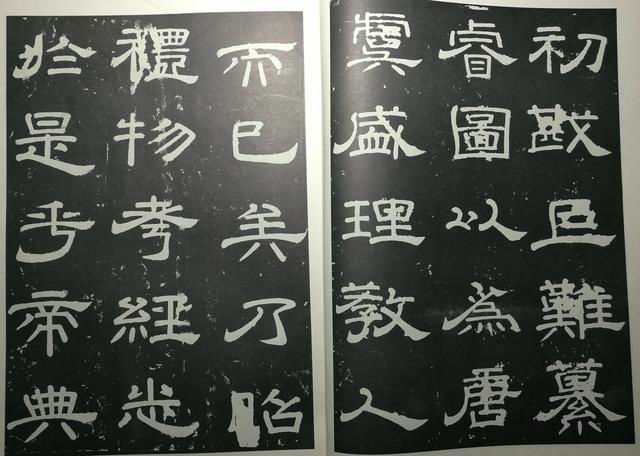 初戡巨難纂
睿圖以為唐
虞盛理教人
而已矣乃昭
禮物考經志
於是乎帝典